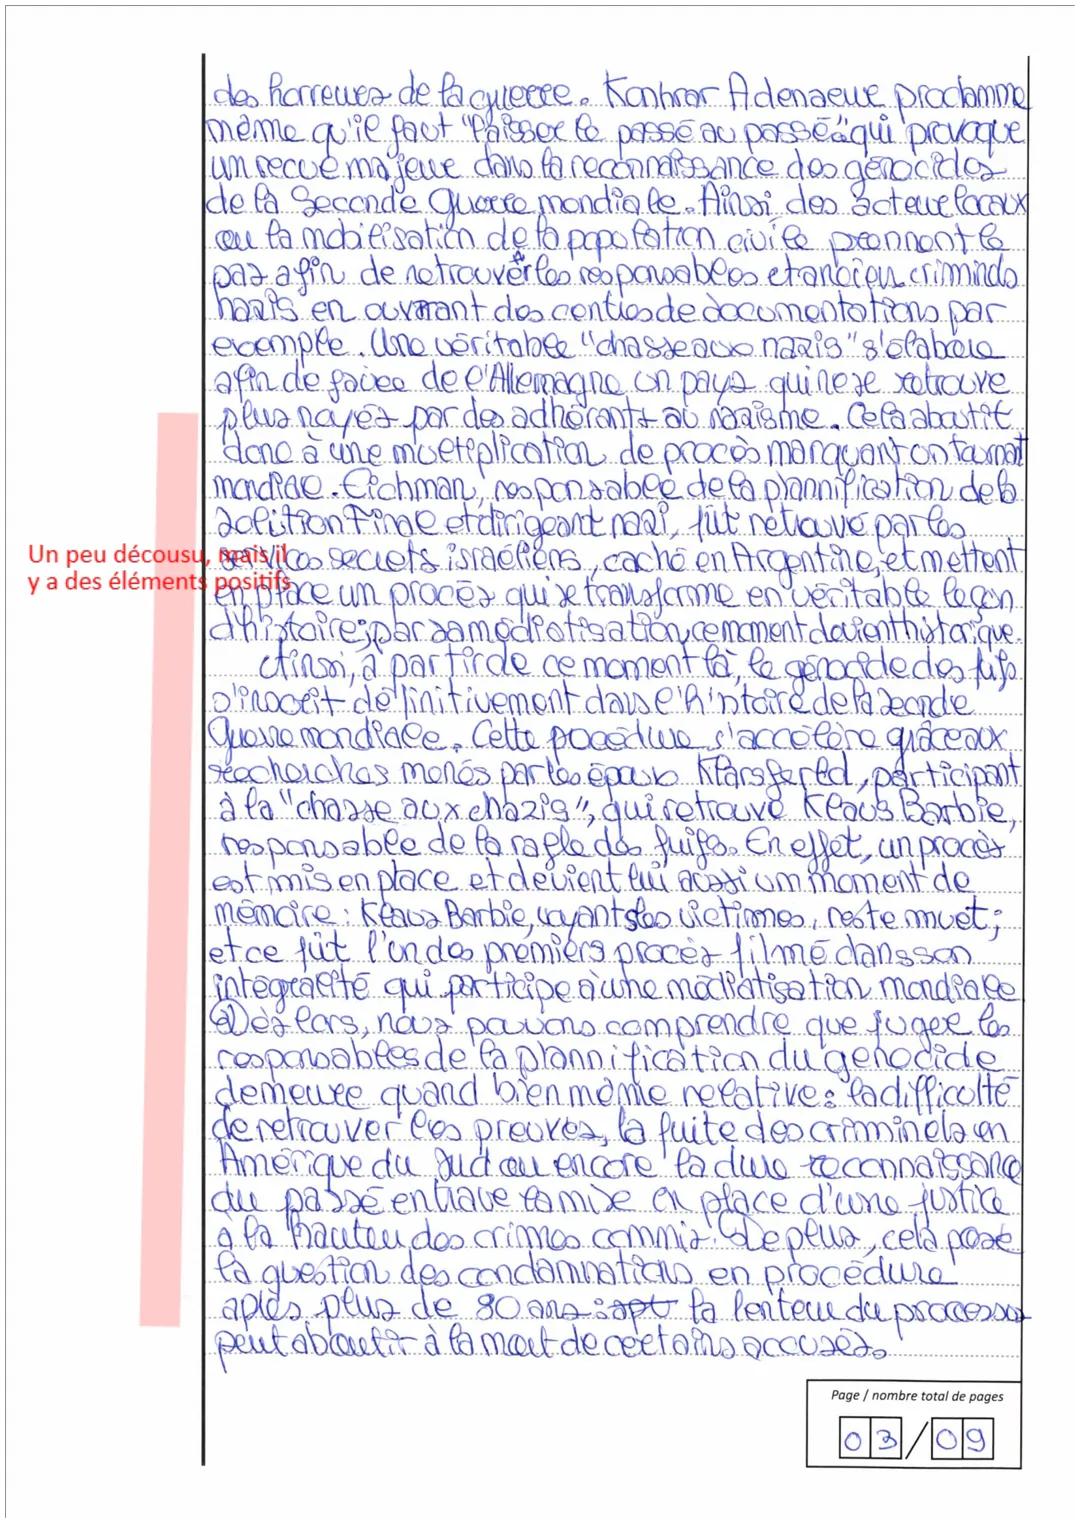 des horreurs de la guerre. Konhrar Adenaeur proclamme
même qu'il faut "laisser le passé au passé" qui provoque
un recue majeur dans la reconnaissance des génocides
de la Seconde Guerre mondiale. Ainsi, des acteur locaux
ou la mobilisation de la population civile prennent le
pas afin de retrouver les responsables et ancien criminels
nazis en ouvrant des centres de documentations par
exemple. Une véritable "chasse aux nazis" s'élabore
afin de faire de l'Allemagne un pays qui ne se retrouve
plus noyés par des adhérants au nazisme. Cela aboutit
donc à une multiplication de procès marquant un tournant
mondiale. Eichman, responsable de la plannification de la
solution Finale et dirigeant nazi, fût retrouvé par les
Un peu décousu, mais il
y a des éléments positifs
services secrets israéliens, caché en Argentine, et mettent
en place un procès qui se transforme en véritable leçon
d'histoire; par sa médiatisation, ce moment devient historique.
Ainsi, à partir de ce moment là, le génocide des juifs
s'inscrit définitivement dans l'histoire de la Seconde
Guerre mondiale. Cette procédure s'accélère grâce aux
recherches menés par les époux Klarsfereld, participant
à la "chasse aux nazis", qui retrouve Klaus Barbie,
responsable de la rafle des juifs. En effet, un procès
est mis en place et devient lui aussi um moment de
mémoire : Klaus Barbie, voyant ses victimes, reste muet;
et ce fût l'un des premiers procès filmé dans son
intégralité qui participe à une médiatisation mondiale
Dès lors, nous pouvons comprendre que juger les
responsables de la plannification du génocide
demeure quand bien même relative : la difficulté
de retrouver les preuves, la fuite des criminels en
Amérique du Sud ou encore la dure reconnaissance
du passé entrave la mise en place d'une justice
à la hauteur des crimes commis. De plus, cela pose
la question des condamnations en procédure
après plus de 80 ans : la lenteur du processus
peut aboutir à la mort de certains accusés.
Page / nombre total de pages
03/09